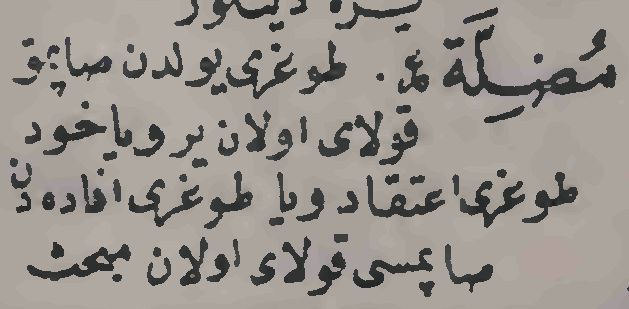 مُضِلَّة ع. طوغری یولدن صاپمق
قولای اولان یر ویاخود
طوغری اعتقاد ویا طوغری افاده دن
صاپمسی قولای اولان مبحث